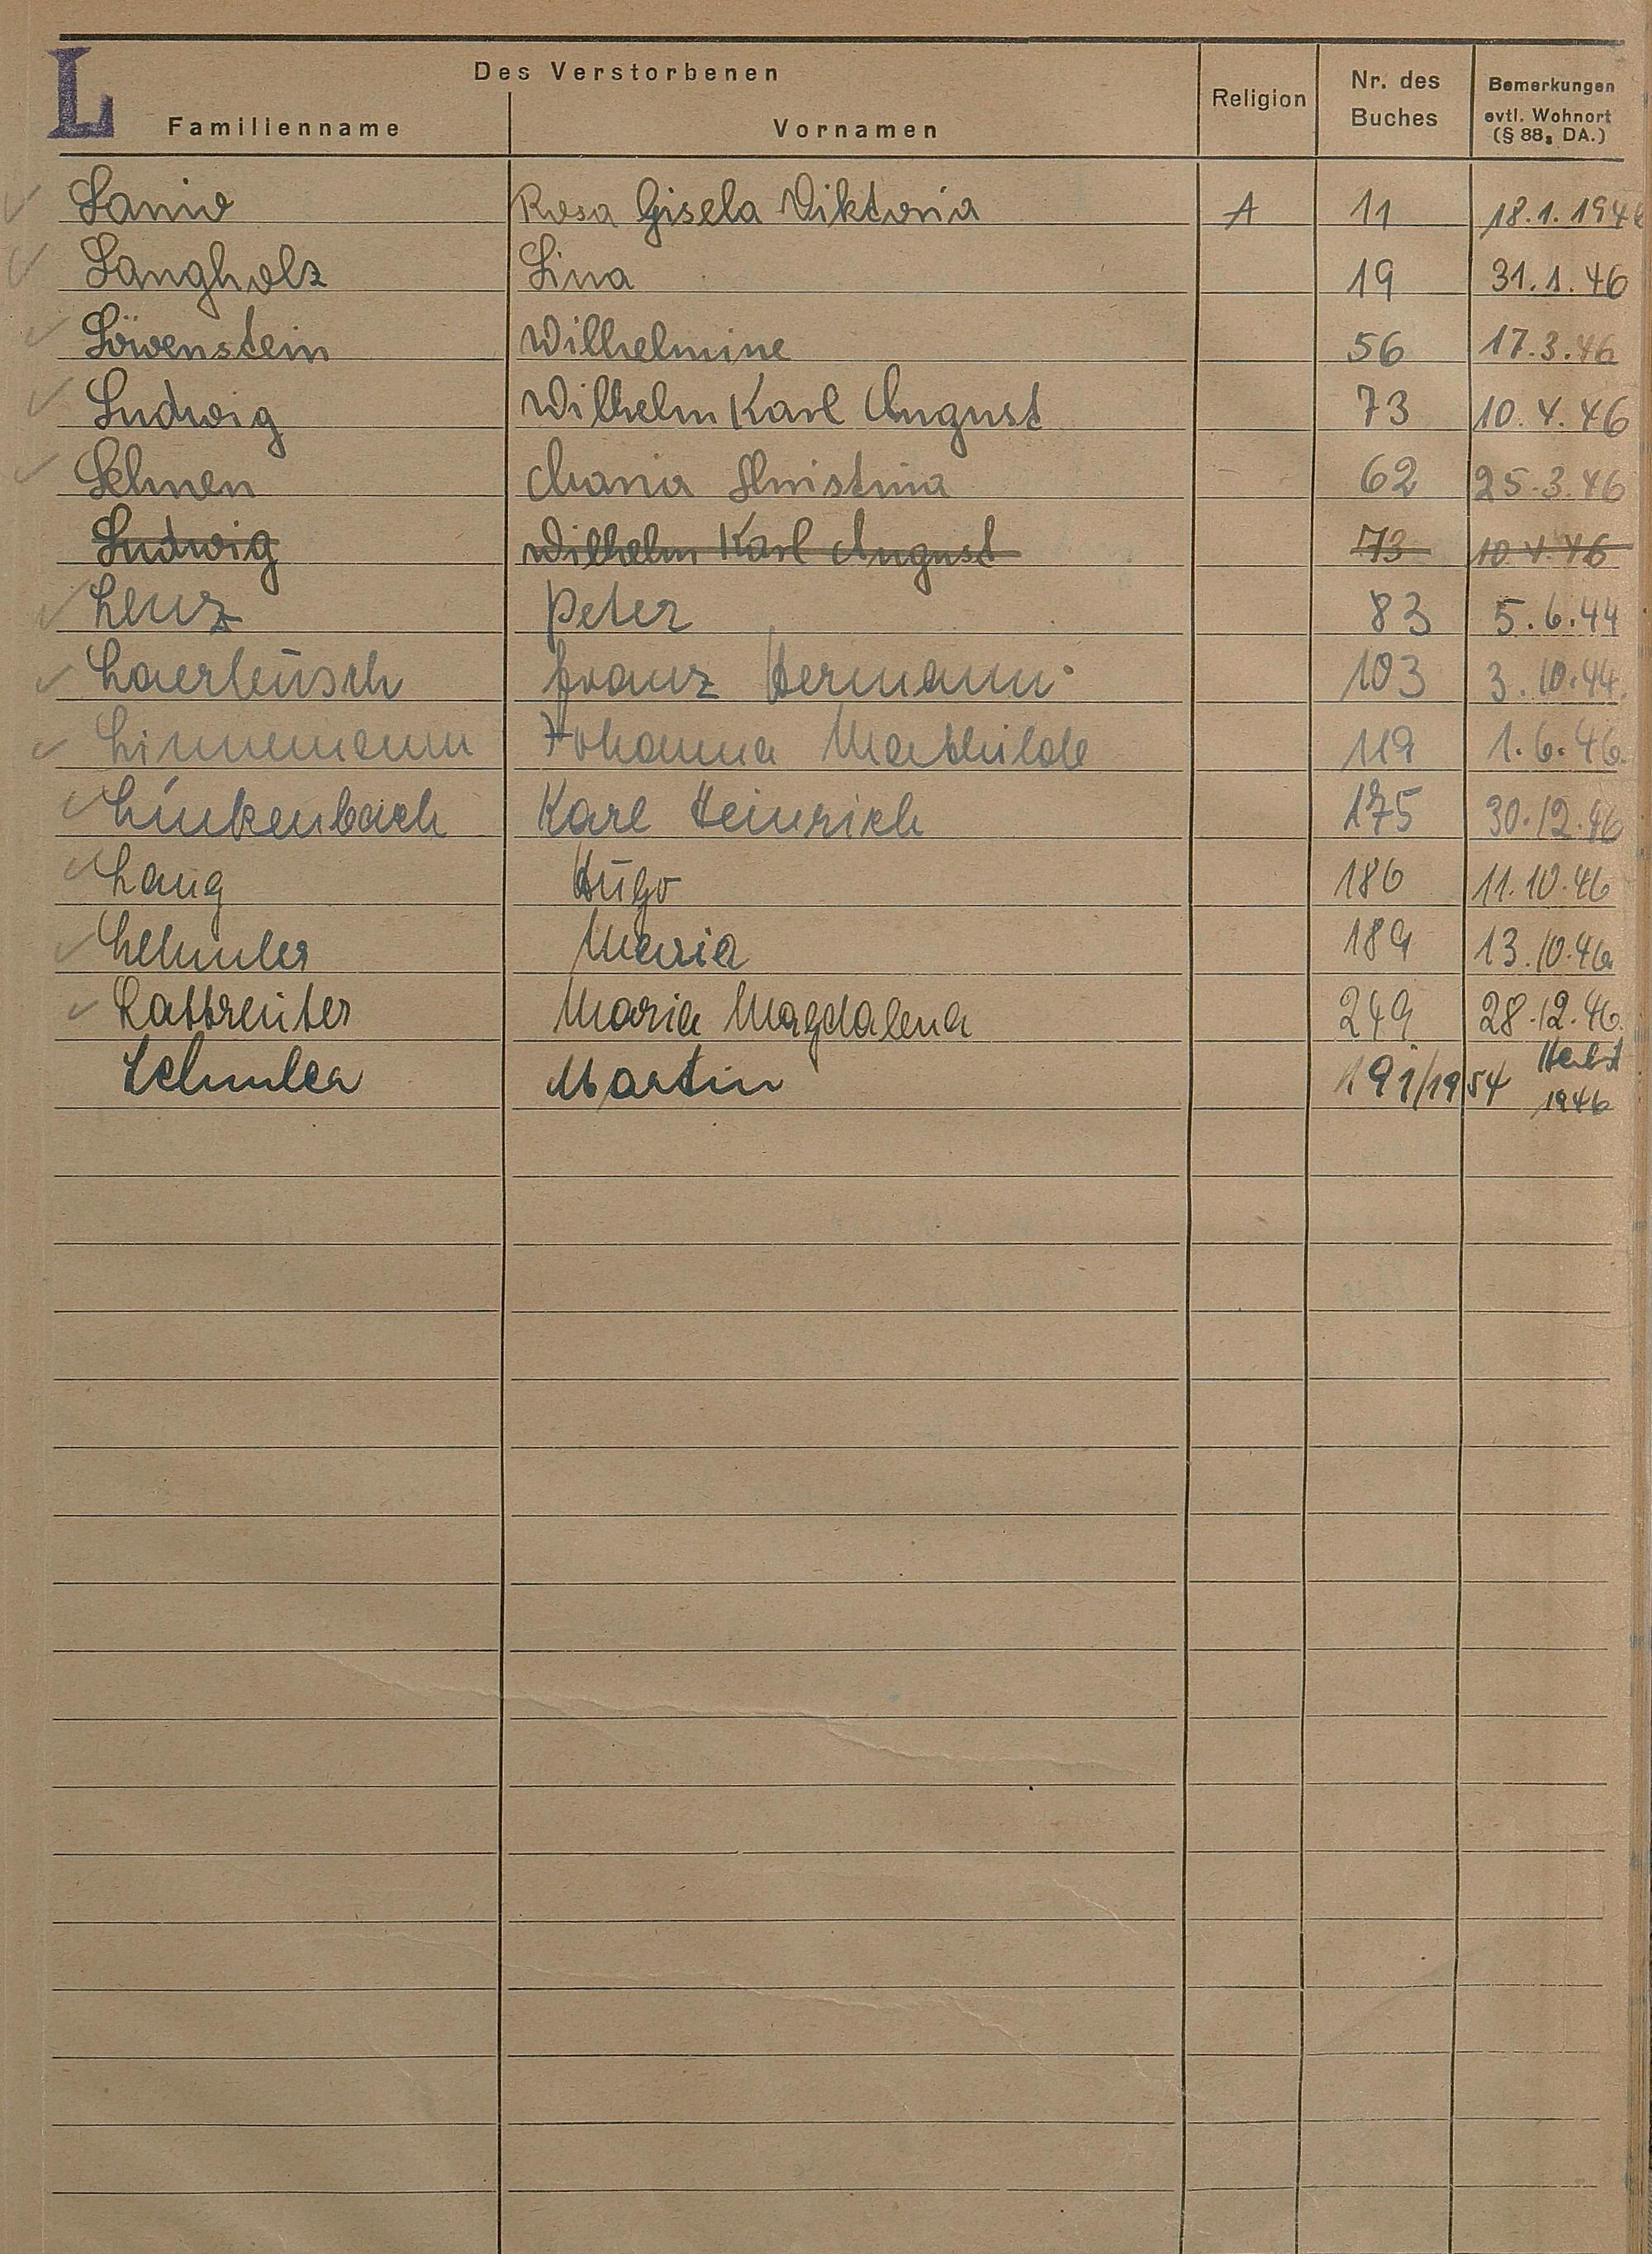 L
Des Verstorbenen
Familienname Vornamen Religion Nr. des Buches Bemerkungen evtl. Wohnort (§ 88, DA.)
Lanio Rosa Gisela Viktoria A 11 18.1.1946
Langholz Lina 19 31.1.46
Löwenstein Wilhelmine 56 17.3.46
Ludwig Wilhelm Karl August 73 10.4.46
Lehnen Maria Christina 62 25.3.46
Ludwig Wilhelm Karl August 73 10.4.46
Lenz Peter 83 5.6.44
Franz Hermann 103 3.10.44.
Linnemann Johanna Mathilde 119 1.6.46.
Linkenbach Karl Heinrich 175 30.12.46
Lang Hugo 186 11.10.46
Lehmler Maria 189 13.10.46
Lattreuter Maria Magdalena 249 28.12.46.
Lehmler Martin 191/1954 Herbst 1946